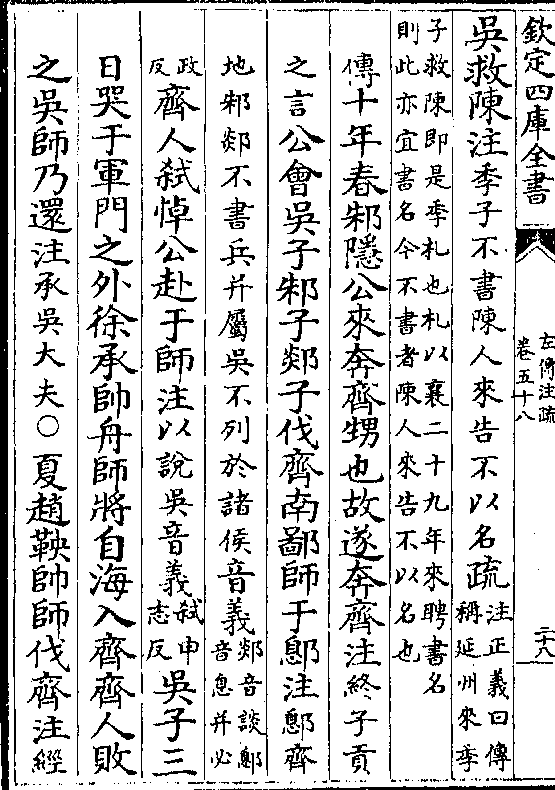 欽定四庫全書
左傳注疏
卷五十八
二十八
吳救陳注季子不書陳人來告不以名疏注正義曰傳
稱延州來季
子救陳即是季札也札以襄二十九年來聘書名
則此亦宜書名今不書者陳人來告不以名也
傳十年春邾隱公來奔齊甥也故遂奔齊注終子貢
之言公會吳子邾子郯子伐齊南鄙師于鄎注鄎齊
地邾郯不書兵并屬吳不列於諸侯音義郯音談鄎
音息并必
政
反齊人弒悼公赴于師注以說吳音義弒申
志反吳子三
日哭于軍門之外徐承帥舟師將自海入齊齊人敗
之吳師乃還注承吳大夫○夏趙鞅帥師伐齊注經